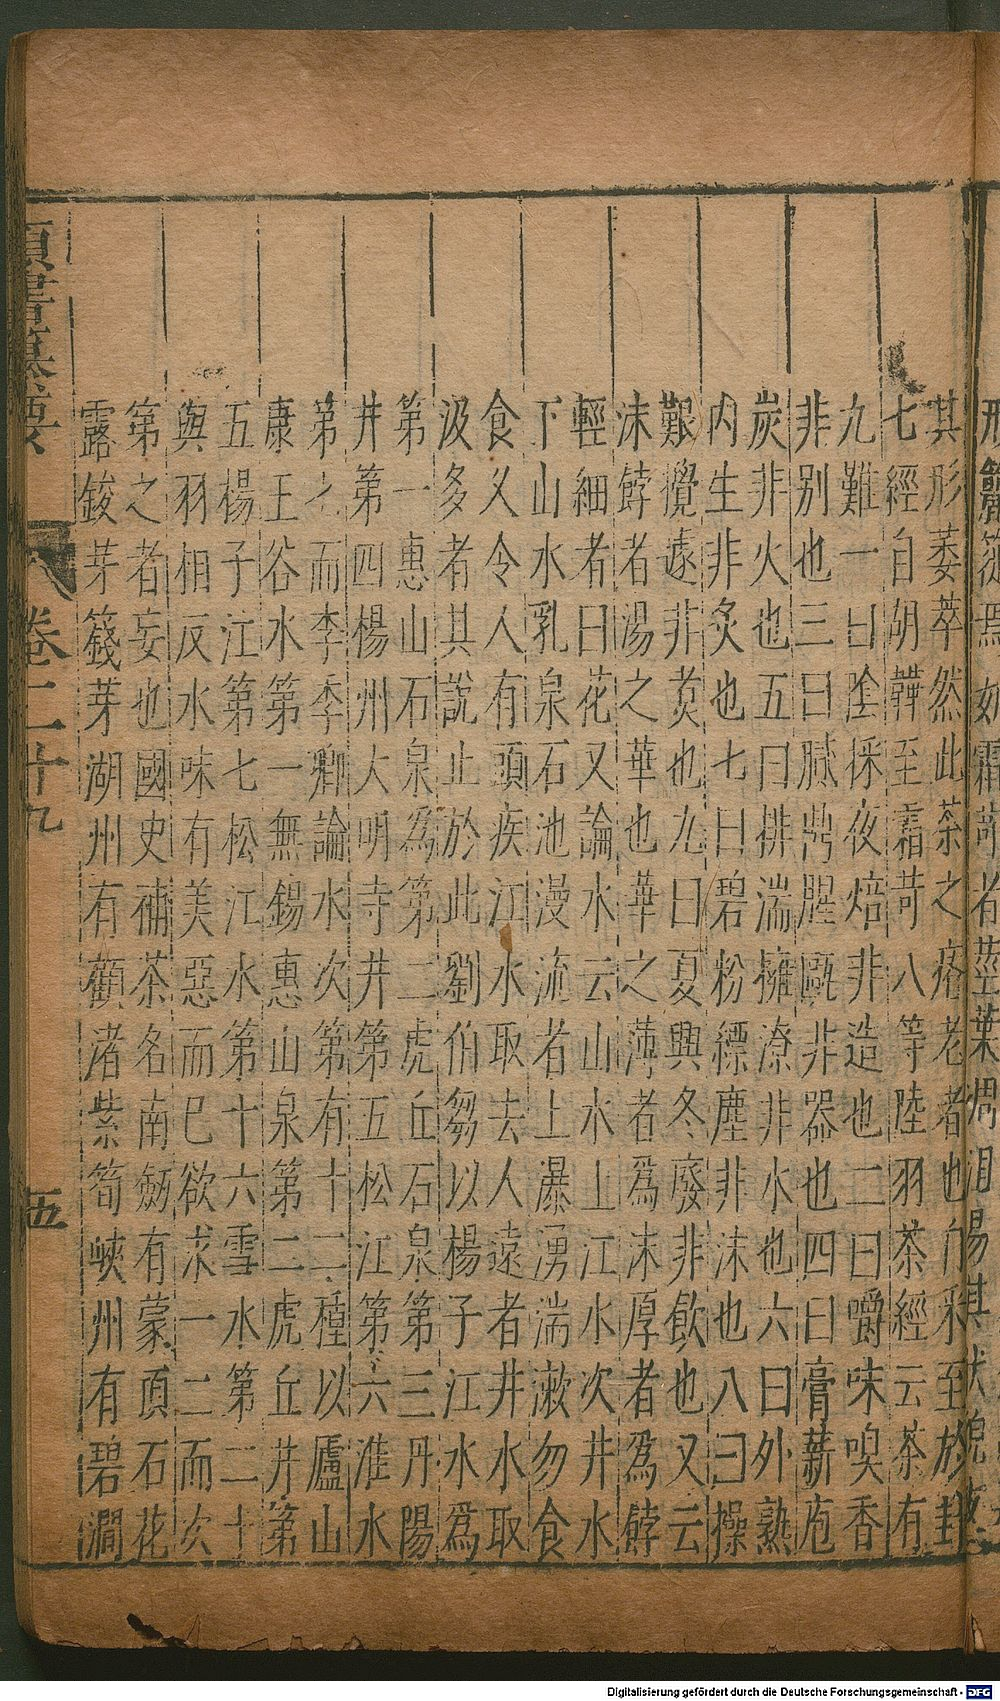 形籠簁焉如霜荷者莖葉凋沮易其狀貌故
其形萎萃然此茶之瘠老者也自采至於封
七經自胡鞾至霜苛八等陸羽茶經云茶有
九難一曰陰採夜焙非造也二曰嚼味嗅香
非別也三曰膩鼎腥甌非器也四曰膏薪庖
炭非火也五曰排湍擁潦非水也六曰外熟
内生非炙也七曰碧粉縹塵非沫也八曰操
艱攪遠非煑也九曰夏興冬廢非飲也又云
沫餑者湯之華也華之薄者爲沫厚者爲餑
輕細者曰花又論水云山水上江水次井水
下山水乳泉石池漫流者上瀑湧湍漱勿食
食乂令人有頭疾江水取去人遠者井水取
汲多者其說止於此劉伯芻以楊子江水爲
第一惠山石泉爲第二虎丘石泉第三丹陽
井第四楊州大明寺井第五松江第六淮水
第七而李季卿論水次第有十二種以廬山
康王谷水第一無錫惠山泉第二虎丘井第
五楊子江第七松江水第十六雪水第二十
與羽相反水味有美惡而已欲求一二而次
第之者妄也國史補茶名南劒有蒙頂石花
露鋑芽籛芽湖州有顧渚紫筍峽州有碧澗
類書纂要 卷二十九 五
Digitalisierung gefördert durch die Deutsche Forschungsgemeinschaft - DFG